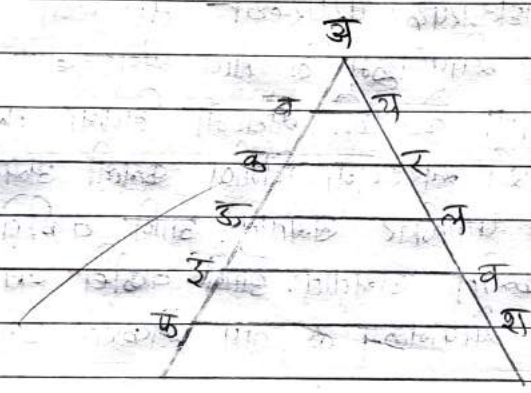 अ
ब य
क र
ऊ ल
इ व
फ श